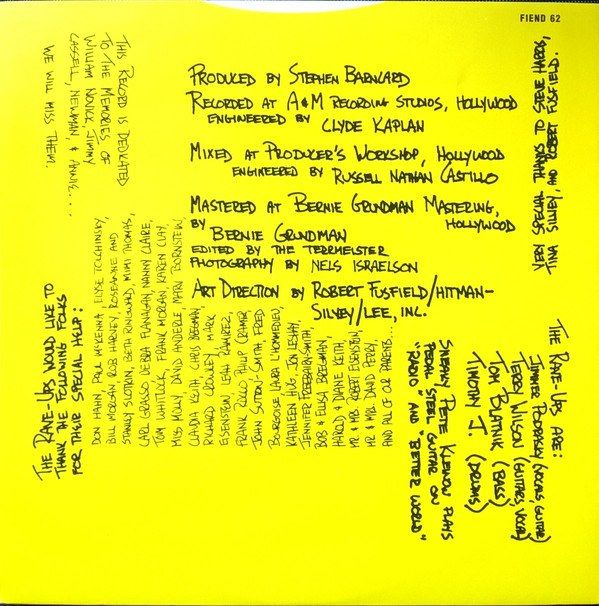 FIEND 62
PRODUCED BY STEPHEN BARNCARD
RECORDED AT A&M RECORDING STUDIOS, HOLLYWOOD
ENGINEERED BY
CLYDE KAPLAN
MIXED AT PRODUCER'S WORKSHOP, HOLLYWOOD
ENGINEERED BY RUSSELL NATHAN CASTILLO
MASTERED AT BERNIE GRUNDMAN MASTERING,
HOLLYWOOD
BY
BERNIE GRUNDMAN
EDITED BY THE TERRMEISTER
PHOTOGRAPHY BY NELS ISRAELSON
ART DIRECTION BY ROBERT FUSFIELD/HITMAN-
SILVEY/LEE, INC.
VERY SPECIAL THANKS TO STEVE HARRIS,
TINA SILVEY, AND ROBERT FUSFIELD.
THE RAVE-UPS ARE:
JIMMER PODRASKY (VOCALS, GUITAR)
TERRY WILSON (GUITARS, VOCAL)
TOM BLATNIK (BASS)
TIMOTHY J. (DRUMS)
SNEAKY PETE KLEINOW PLAYS
PEDAL STEEL GUITAR ON
"RADIO" AND "BETTER WORLD"
THIS RECORD IS DEDICATED
TO THE MEMORIES OF
WILLIAM NOVICK, JIMMY
CASSELL, NEWMAN, & ANNIE...
WE WILL MISS THEM.
THE RAVE-UPS WOULD LIKE TO
THANK THE FOLLOWING FOLKS
FOR THEIR SPECIAL HELP:
DON HAHN, PAUL McKENNA, ELYSE TOLCHINSKY,
BILL MORGAN, ROB HARVEY, ROSEANNE AND
STANLY SLOTKIN, BETH RINGWALD, MIMI THOMAS,
CARL GRASSO, DEBRA FLANAGAN, NANNY CLAIRE,
TOM WHITLOCK, FRANK MORGAN, KAREN CLAY,
MISS MOLLY, DAVID ANDERLE, MARK BORNSTEIN,
CLAUDIA KEITH, CHRIS BREGMAN,
RICHARD CROWLEY, MARK
EISENSTEIN, LEAH RAMIREZ,
FRANK COCCO, PHILIP CRAMER,
JOHN SUTTON-SMITH, FRED
BOURGOISE, LAURA
KATHLEEN HUG, JON LESHAY,
JENNIFER FREEBAIRN-SMITH,
BOB & ELISA BREGMAN,
HAROLD & DIANNE KEITH,
MR. & MRS. ROBERT EISENSTEIN,
MR. & MRS. DAVID PERRY,
AND ALL OF OUR PARENTS...